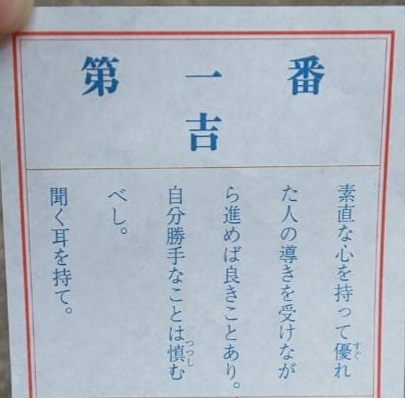 第一番
吉
素直な心を持って優れ
た人の導きを受けなが
ら進めば良きことあり。
自分勝手なことは慎む
べし。
聞く耳を持て。